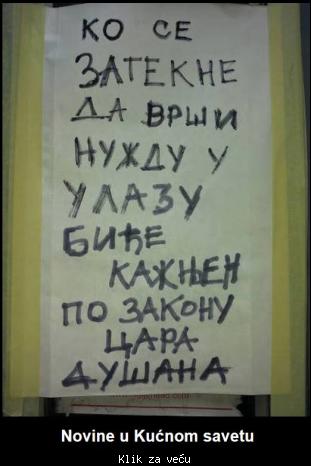 КО СЕ
ЗАТЕКНЕ
ДА ВРШИ
НУЖДУ У
УЛАЗУ
БИЋЕ
КАЖЊЕН
ПО ЗАКОНУ
ЦАРА
ДУШАНА
Novine u Kućnom savetu
Klik za veću